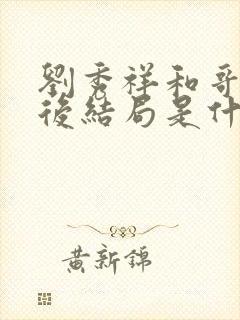 劉秀祥和哥
後結局是什
黃新錦